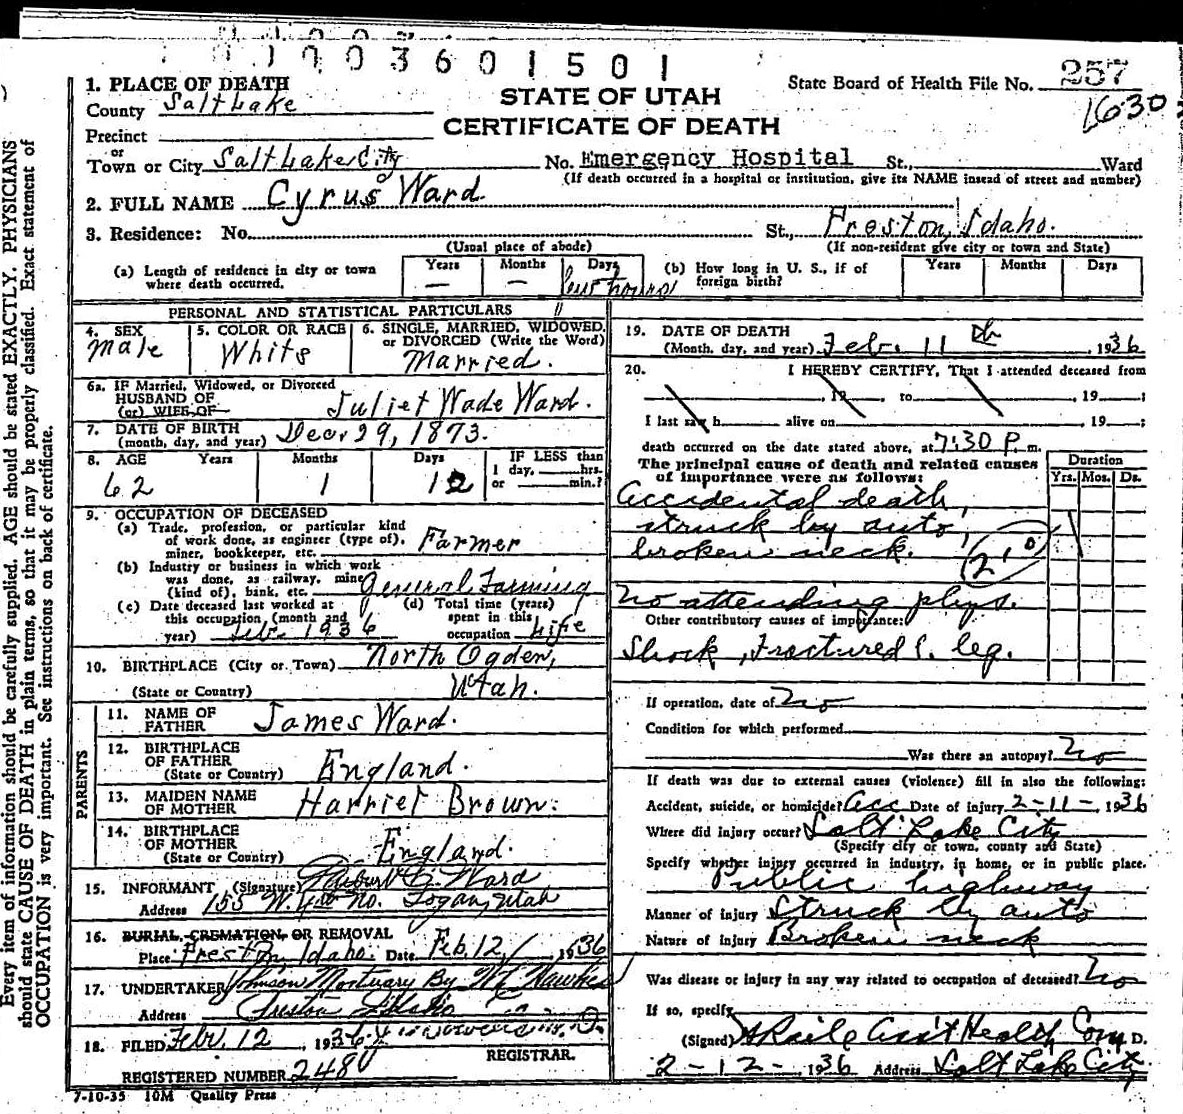 1003601501
1. PLACE OF DEATH
County Salt Lake
Precinct
or
Town or City Salt Lake City
STATE OF UTAH
CERTIFICATE OF DEATH
State Board of Health File No. 257
1630
No. Emergency Hospital St., Ward
(If death occurred in a hospital or institution, give its NAME instead of street and number)
2. FULL NAME Cyrus Ward
3. Residence: No. St., Preston, Idaho.
(Usual place of abode) (If non-resident give city or town and State)
(a) Length of residence in city or town where death occurred. Years — Months — Days hours
(b) How long in U. S., if of foreign birth? Years Months Days
PERSONAL AND STATISTICAL PARTICULARS
4. SEX Male
5. COLOR OR RACE White
6. SINGLE, MARRIED, WIDOWED, or DIVORCED (Write the Word) Married.
6a. IF Married, Widowed, or Divorced
HUSBAND OF
(or) WIFE OF Juliet Wade Ward.
7. DATE OF BIRTH
(month, day, and year) Dec. 29, 1873.
8. AGE Years Months Days IF LESS than
1 day, hrs.
or min.?
62 1 12
9. OCCUPATION OF DECEASED
(a) Trade, profession, or particular kind
of work done, as engineer (type of),
miner, bookkeeper, etc. Farmer
(b) Industry or business in which work
was done, as railway, mine
(kind of), bank, etc. General Farming
(c) Date deceased last worked at
this occupation, (month and
year) Feb. 1936
(d) Total time (years)
spent in this
occupation Life
10. BIRTHPLACE (City or Town) North Ogden,
(State or Country) Utah.
PARENTS
11. NAME OF FATHER James Ward.
12. BIRTHPLACE OF FATHER
(State or Country) England.
13. MAIDEN NAME OF MOTHER Harriet Brown.
14. BIRTHPLACE OF MOTHER
(State or Country) England.
15. INFORMANT (Signature) Ward
Address 155 W. 4th No. Logan, Utah
16. BURIAL, CREMATION, OR REMOVAL
Place Preston, Idaho. Date Feb. 12, 1936
17. UNDERTAKER Johnson Mortuary By W. Hawkes
Address Preston Idaho
18. FILED Feb. 12, 1936
REGISTRAR.
REGISTERED NUMBER 248
7-10-35 10M Quality Press
19. DATE OF DEATH
(Month, day, and year) Feb. 11th, 1936
20. I HEREBY CERTIFY, That I attended deceased from
, 19 to , 19 ;
I last saw h alive on , 19 ;
death occurred on the date stated above, at 7:30 P. m.
The principal cause of death and related causes
of importance were as follows:
Duration
Yrs. Mos. Ds.
Accidental death,
struck by auto,
broken neck.
210
No attending phys.
Other contributory causes of importance:
Shock, Fractured l. leg.
If operation, date of No
Condition for which performed
Was there an autopsy? No
If death was due to external causes (violence) fill in also the following:
Accident, suicide, or homicide? Acc Date of injury 2-11-, 1936
Where did injury occur? Salt Lake City
(Specify city or town, county and State)
Specify whether injury occurred in industry, in home, or in public place.
Public highway
Manner of injury Struck by auto
Nature of injury Broken neck
Was disease or injury in any way related to occupation of deceased? No
If so, specify
(Signed) Ass't Health Com M. D.
2-12-, 1936 Address Salt Lake City
Every item of information should be carefully supplied. AGE should be stated EXACTLY. PHYSICIANS
should state CAUSE OF DEATH in plain terms, so that it may be properly classified. Exact statement of
OCCUPATION is very important. See instructions on back of certificate.